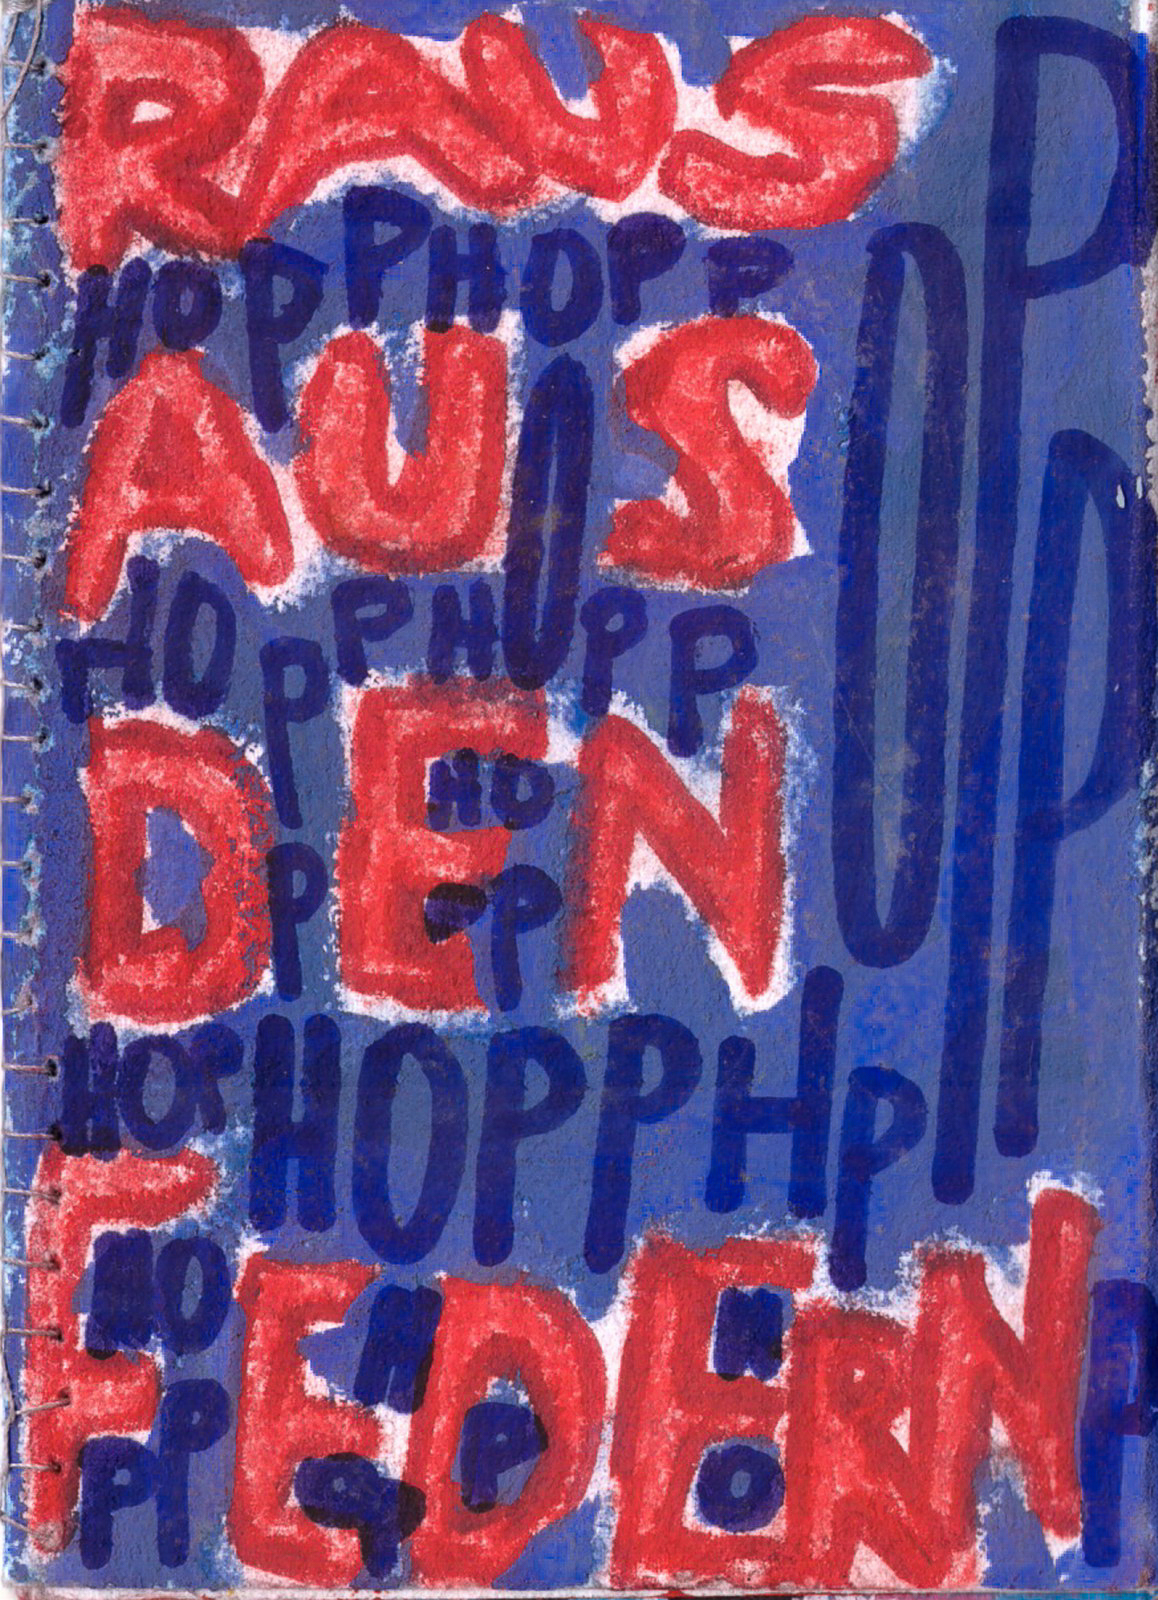 RAUS
HOPPHOPP
AUS
HOPPHOPP
DEN
HO
PP
HOPHOPPHOPP
FEDERN
HO
PP
HOPP
HO